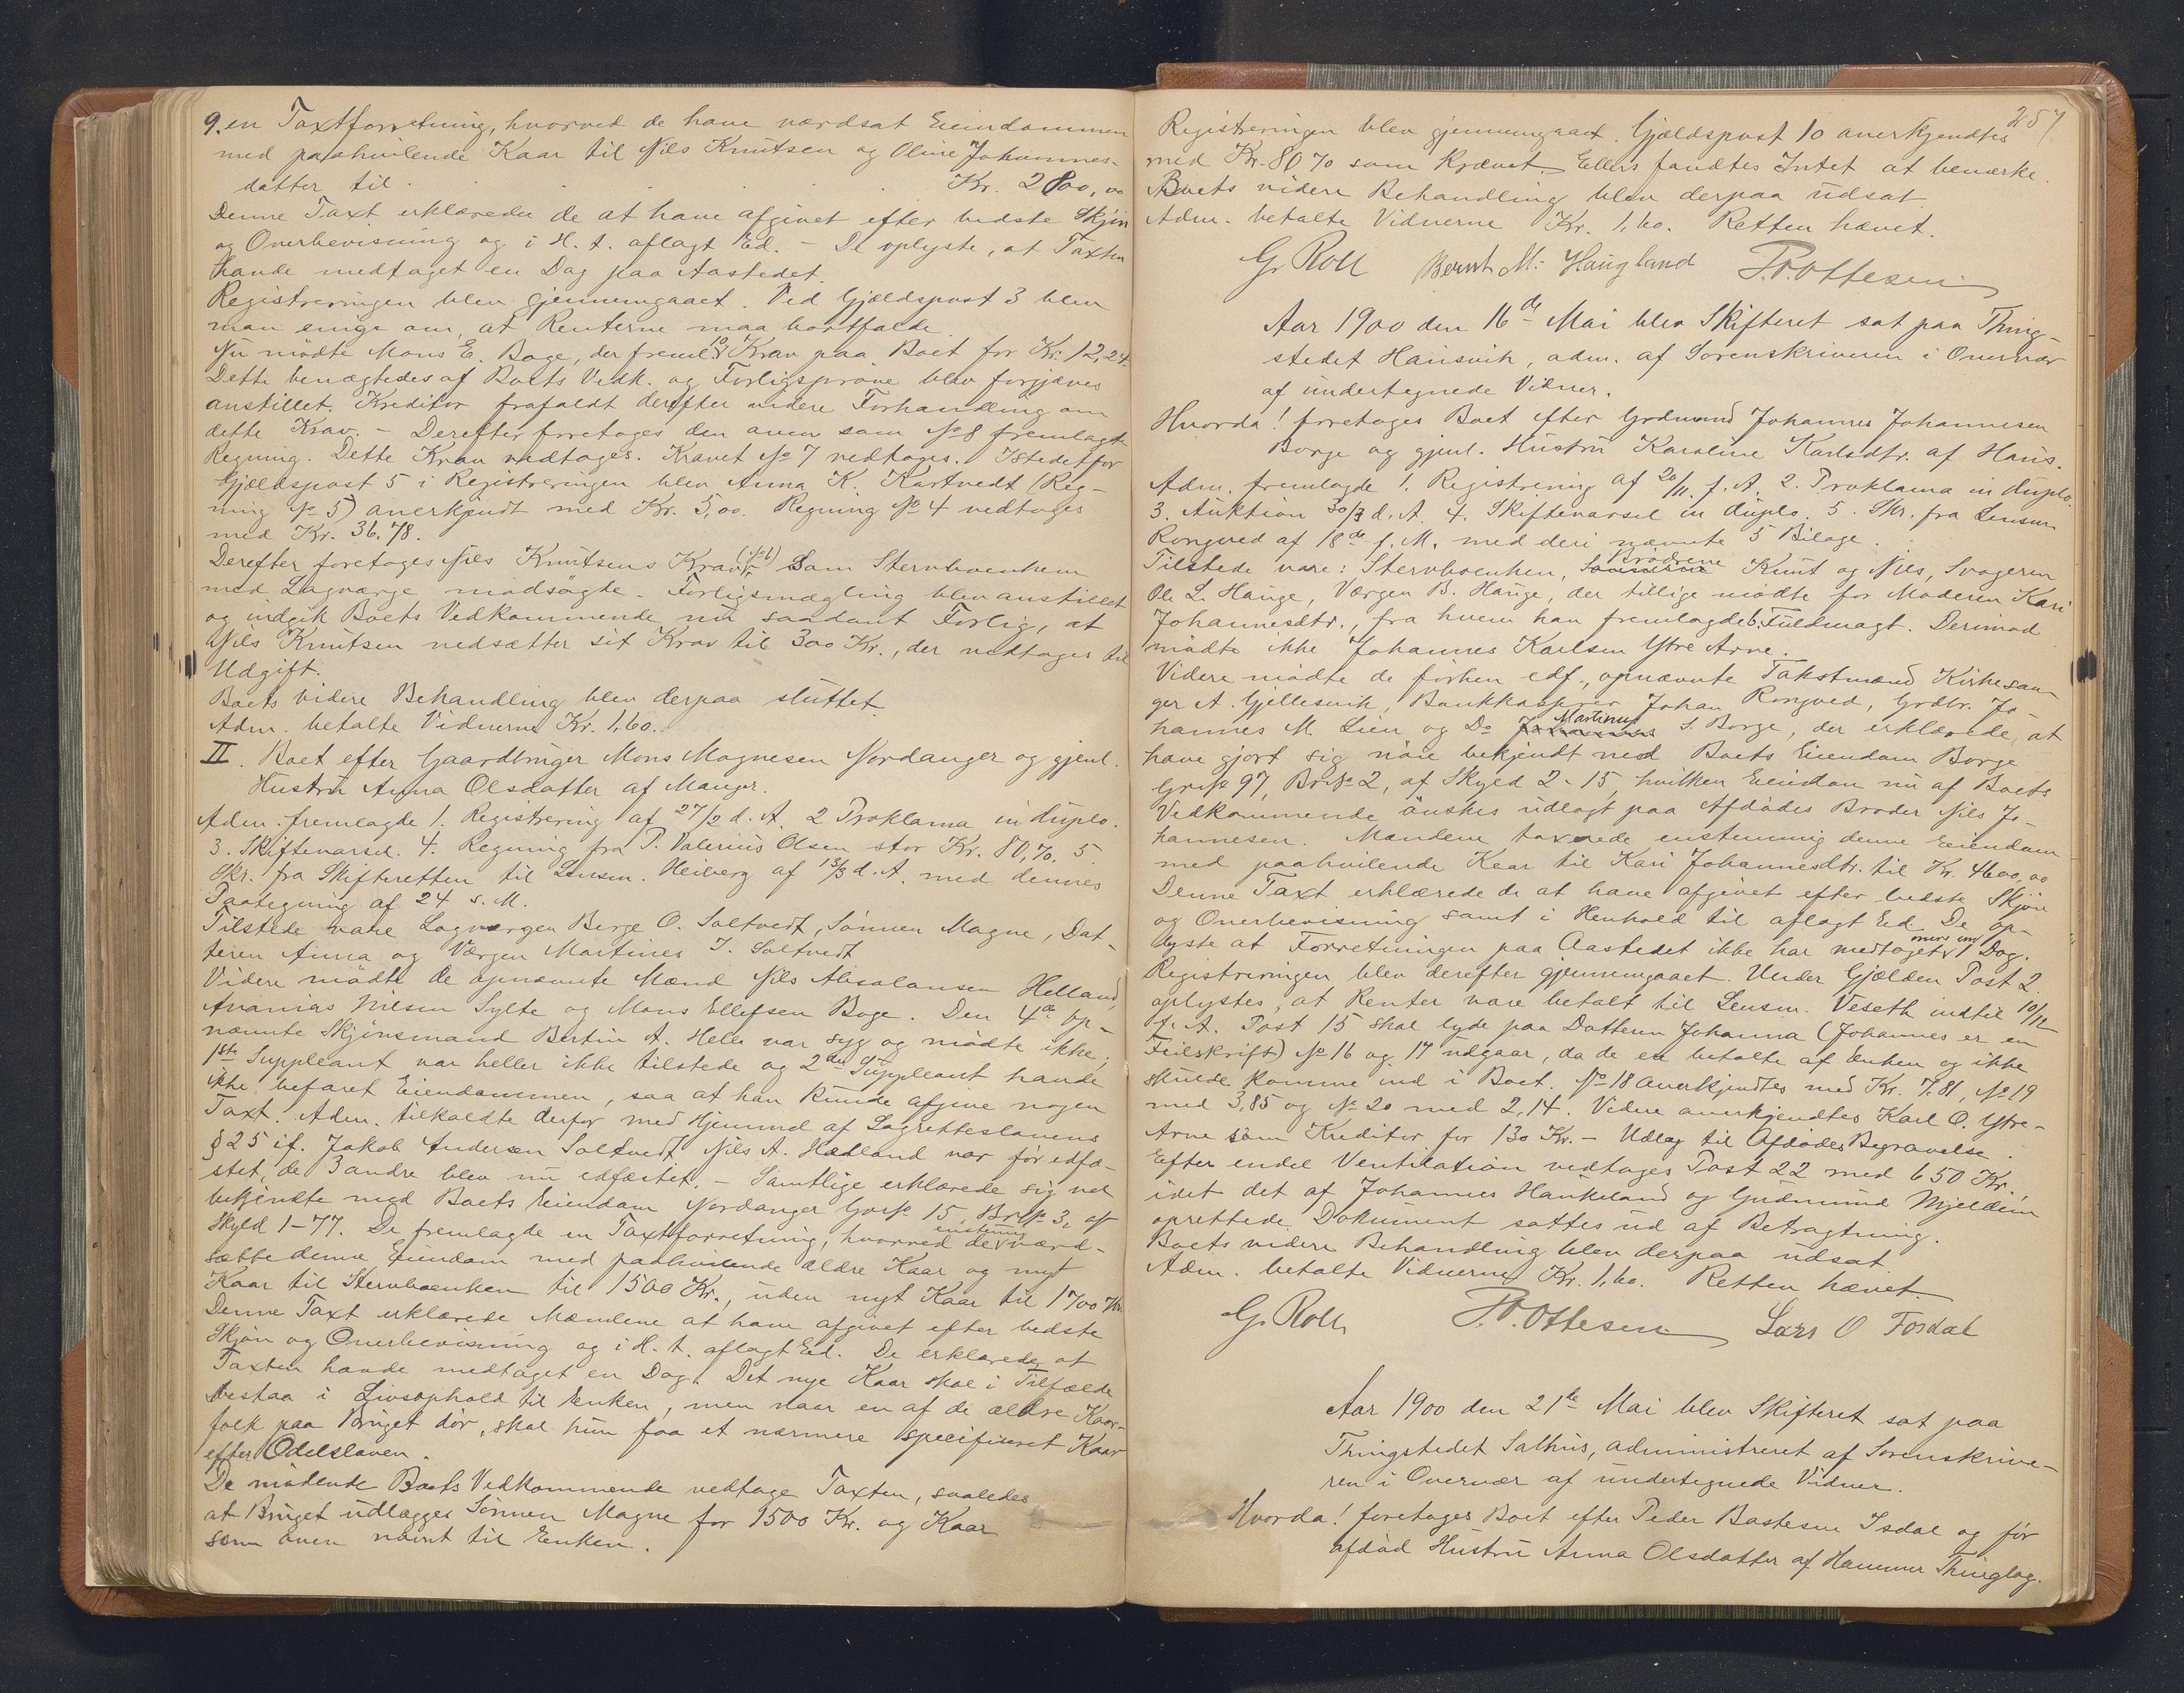 9. en Taxtforretning, hvorved de have værdsat Eiendommen
med paahvilende Kaar til Nils Knutsen og Oline Johannes-
datter til . . . . Kr. 2800,00
Denne Taxt erklærede de at have afgivet efter bedste Skjøn
og Overbevisning og i H. t. aflagt Ed. - De oplyste, at Taxten
havde medtaget en Dag paa Aastedet.
Registreringen blev gjennemgaaet. Ved Gjældspost 3 blev
man enige om, at Renterne maa bortfalde.
Nu mødte Mons E. Boge, der freml. 10 Krav paa Boet for Kr. 12,24.
Dette benægtedes af Boets Vedk. og Forligsprøve blev forgjæves
anstillet. Kreditor frafaldt derefter videre Forhandling om
dette Krav. - Derefter foretoges den oven som No 8 fremlagte
Regning. Dette Krav vedtoges. Kravet No 7 vedtoges. Istedetfor
Gjældspost 5 i Registreringen blev Anna K. Kartvedt (Reg-
ning No 5) anerkjendt med Kr. 5,00. Regning No 4 vedtoges
med Kr. 36.78.
Derefter foretoges Nils Knutsens Krav (No 6) som Stervboenken
med Lagværge modsagte. Forligsmægling blev anstillet
og indgik Boets Vedkommende nu saadant Forlig, at
Nils Knutsen nedsætter sit Krav til 300 Kr., der vedtoges til
Udgift.
Boets videre Behandling blev derpaa sluttet.
Adm. betalte Vidnerne Kr. 1,60.
II. Boet efter Gaardbruger Mons Magnesen Nordanger og gjenl.
Hustru Anna Olsdatter af Manger.
Adm. fremlagde 1. Registrering af 27/2 d. A. 2 Proklama in duplo.
3. Skiftevarsel. 4. Regning fra P. Valerius Olsen stor Kr. 80,70. 5.
Skr. fra Skifteretten til Lensm. Heiberg af 13/3 d. A. med dennes
Paategning af 24 s. M.
Tilstede vare Lagværgen Berge O. Soltvedt, Sønnen Magne, Dat-
teren Anna og Værgen Martines J. Soltvedt
Videre mødte de opnævnte Mænd Nils Absalonsen Helland,
Ananias Nilsen Sylte og Mons Ellefsen Boge. Den 4de op-
nævnte Skjønsmand Bertin A. Helle var syg og mødte ikke;
1ste Suppleant var heller ikke tilstede og 2den Suppleant havde
ikke befaret Eiendommen, saa at han kunde afgive nogen
Taxt. Adm. tilkaldte derfor med Hjemmel af Lagretteslovens
§ 25 if. Jakob Andersen Soltvedt. Nils A. Hedland var før edfæ-
stet, de 3 andre blev nu edfæstet. - Samtlige erklærede sig vel
bekjendte med Boets Eiendom Nordanger Gno 15, Brno 3, af
Skyld 1-77. De fremlagde en Taxtforretning, hvorved de enstemmig værd-
sætte denne Eiendom med paahvilende ældre Kaar og nyt
Kaar til Stervboenken til 1500 Kr., uden nyt Kaar til 1700 Kr.
Denne Taxt erklærede Mændene at have afgivet efter bedste
Skjøn og Overbevisning og i H. t. aflagt Ed. De erklærede, at
Taxten havde medtaget en Dag. Det nye Kaar skal i Tilfælde
bestaa i Livsophold til Enken, men naar en af de ældre Kaar-
folk paa Bruget dør, skal hun faa et nærmere specifiseret Kaar
efter Odelsloven.
De mødende Boets Vedkommende vedtoge Taxten, saaledes
at Bruget udlægges Sønnen Magne for 1500 Kr. og Kaar
som oven nævnt til Enken.
257
Registreringen blev gjennemgaaet. Gjældspost 10 anerkjendtes
med Kr. 80 70 som krævet. Ellers fandtes Intet at bemærke.
Boets videre Behandling blev derpaa udsat.
Adm. betalte Vidnerne Kr. 1,60. Retten hævet.
G. Roll Bernt M. Haugland P. O. Ottesen
Aar 1900 den 16de Mai blev Skifteret sat paa Thing-
stedet Hausvik, adm. af Sorenskriveren i Overvær
af undertegnede Vidner.
Hvorda! foretoges Boet efter Grdmand Johannes Johannesen
Borge og gjenl. Hustru Karoline Karlsdtr. af Haus.
Adm. fremlagde 1. Registrering af 20/11. f. A. 2. Proklama in duplo.
3. Auktion 30/3 d. A. 4. Skiftevarsel in duplo. 5. Skr. fra Lensm.
Rongved af 18de f. M. med deri nævnte 5 Bilage.
Tilstede vare: Stervboenken, Brødrene Knut og Nils, Svogeren
Ole L. Hauge, Værgen B. Hauge, der tillige mødte for Moderen Kari
Johannesdtr., fra hvem han fremlagde 6. Fuldmagt. Derimod
mødte ikke Johannes Karlsen Ytre Arne.
Videre mødte de forhen edf., opnævnte Takstmænd Kirkesan-
ger A. Gjellesvik, Bankkasserer Johan Rongved, Grdbr. Jo-
hannes M. Lien og Do Martinus S. Borge, der erklærede, at
have gjort sig nøie bekjendt med Boets Eiendom Borge
Gno 97, Brno 2, af Skyld 2-15, hvilken Eiendom nu af Boets
Vedkommende ønskes udlagt paa Afdødes Broder Nils Jo-
hannesen. Mændene taxerede enstemmig denne Eiendom
med paahvilende Kaar til Kari Johannesdtr. til Kr. 4600,00
Denne Taxt erklærede de at have afgivet efter bedste Skjøn
og Overbevisning samt i Henhold til aflagt Ed. De op-
lyste at Forretningen paa Aastedet ikke har medtaget mere end 1 Dag.
Registreringen blev derefter gjennemgaaet. Under Gjælden Post 2
oplystes, at Renter vare betalt til Lensm. Veseth indtil 10/12
f. A. Post 15 skal lyde paa Datteren Johanna (Johannes er en
Feilskrift) No 16 og 17 udgaar, da de er betalte af Enken og ikke
skulde komme ind i Boet. No 18 anerkjendtes med Kr. 7.81, No 19
med 3,85 og No 20 med 2,14. Videre anerkjendtes Karl O. Ytre-
Arne som Kreditor for 130 Kr. - Udlæg til Afdødes Begravelse.
Efter endel Ventilation vedtoges Post 22 med 650 Kr.,
idet det af Johannes Haukeland og Gudmund Mjeldheim
oprettede Dokument sattes ud af Betragtning.
Boets videre Behandling blev derpaa udsat.
Adm. betalte Vidnerne Kr. 1,60. Retten hævet.
G. Roll P. O. Ottesen Lars O Fosdal
Aar 1900 den 21de Mai blev Skifteret sat paa
Thingstedet Salhus, administreret af Sorenskrive-
ren i Overvær af undertegnede Vidner.
Hvorda! foretoges Boet efter Peder Bastesen Isdal og før
afdød Hustru Anna Olsdatter af Hammer Thinglag.